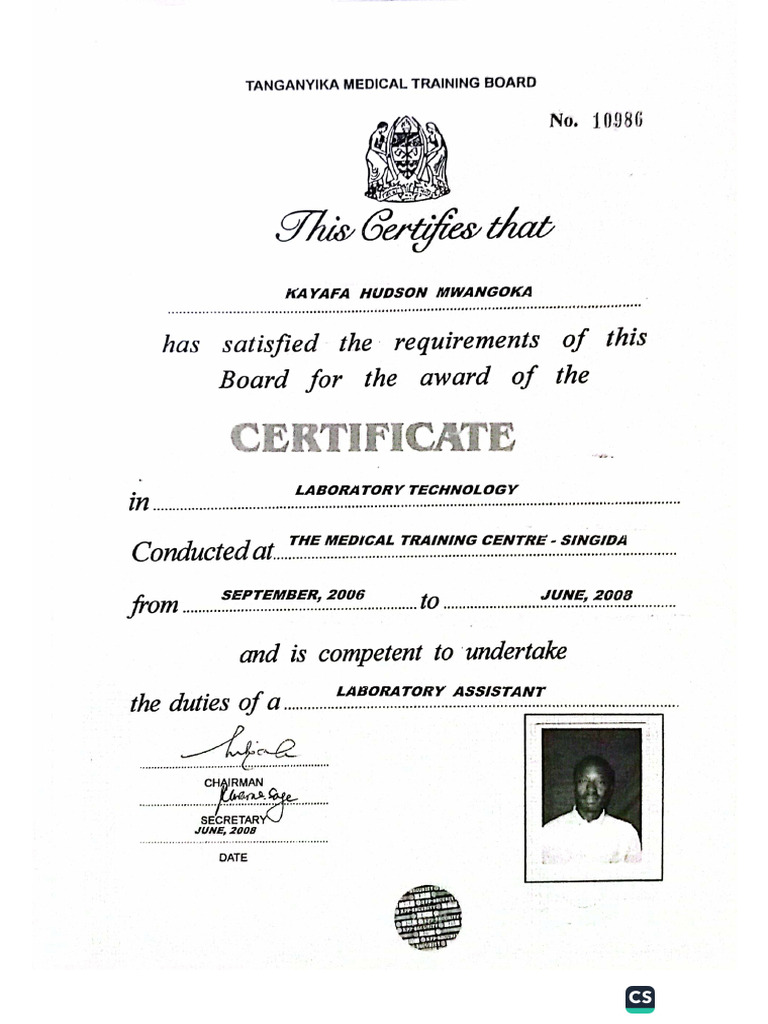 TANGANYIKA MEDICAL TRAINING BOARD
No. 10986
This Certifies that
KAYAFA HUDSON MWANGOKA
has satisfied the requirements of this
Board for the award of the
CERTIFICATE
in LABORATORY TECHNOLOGY
Conducted at THE MEDICAL TRAINING CENTRE - SINGIDA
from SEPTEMBER, 2006 to JUNE, 2008
and is competent to undertake
the duties of a LABORATORY ASSISTANT
CHAIRMAN
SECRETARY
JUNE, 2008
DATE
CS